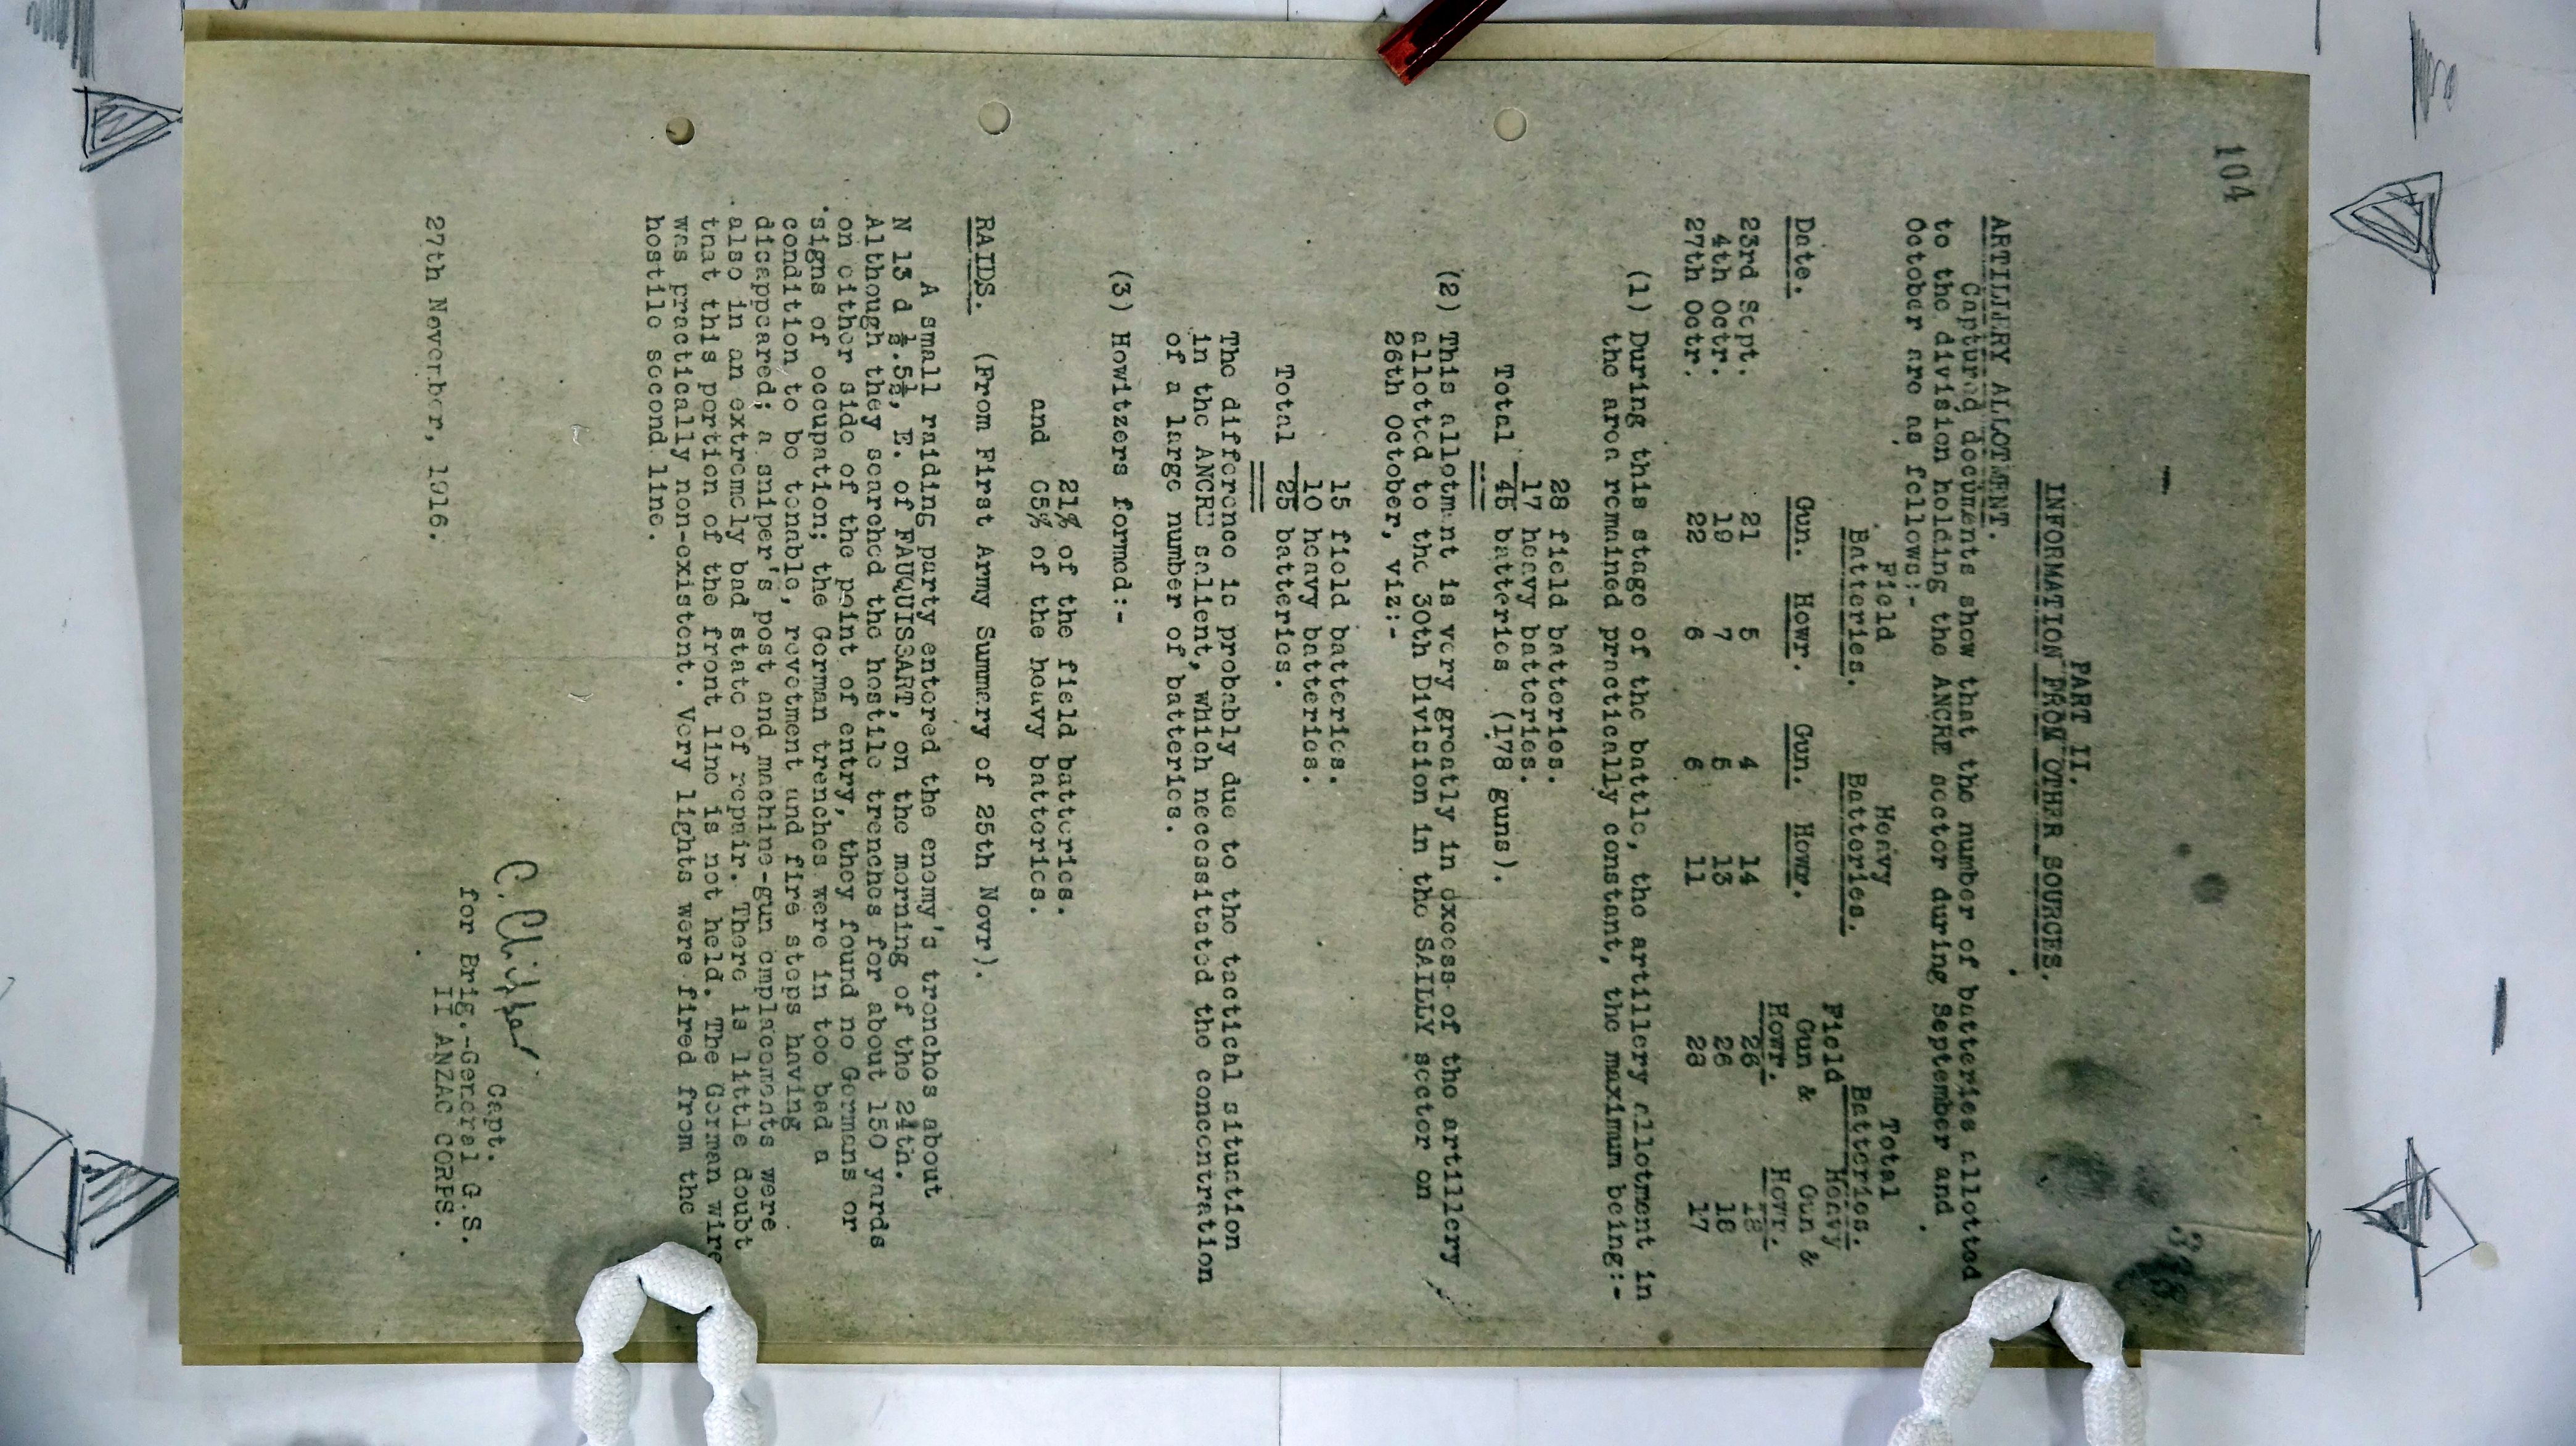 104
PART II.
INFORMATION FROM OTHER SOURCES.
ARTILLERY ALLOTMENT.
Captured documents show that the number of batteries allotted
to the division holding the ANCRE sector during September and
October are as follows:-
Field Heavy Total
Batteries. Batteries. Batteries.
Field Heavy
Gun & Gun &
Date. Gun. Howr. Gun. Howr. Howr. Howr.
23rd Sept. 21 5 4 14 26 18
4th Octr. 19 7 5 13 26 18
27th Octr. 22 6 6 11 28 17
(1) During this stage of the battle, the artillery allotment in
the area remained practically constant, the maximum being:-
28 field batteries.
17 heavy batteries.
Total 45 batteries (178 guns).
(2) This allotment is very greatly in excess of the artillery
allotted to the 30th Division in the SAILLY sector on
26th October, viz:-
15 field batteries.
10 heavy batteries.
Total 25 batteries.
The difference is probably due to the tactical situation
in the ANCRE salient, which necessitated the concentration
of a large number of batteries.
(3) Howitzers formed:-
21% of the field batteries.
and 65% of the heavy batteries.
RAIDS. (From First Army Summary of 25th Novr).
A small raiding party entered the enemy's trenches about
N 13 d ½.5½, E. of FAUQUISSART, on the morning of the 24th.
Although they searched the hostile trenches for about 150 yards
on either side of the point of entry, they found no Germans or
signs of occupation; the German trenches were in too bad a
condition to be tenable, revetment and fire steps having
disappeared; a sniper's post and machine-gun emplacements were
also in an extremely bad state of repair. There is little doubt
that this portion of the front line is not held. The German wire
was practically non-existent. Very lights were fired from the
hostile second line.
Capt.
for Brig.-General G.S.
27th November, 1916. II ANZAC CORPS.